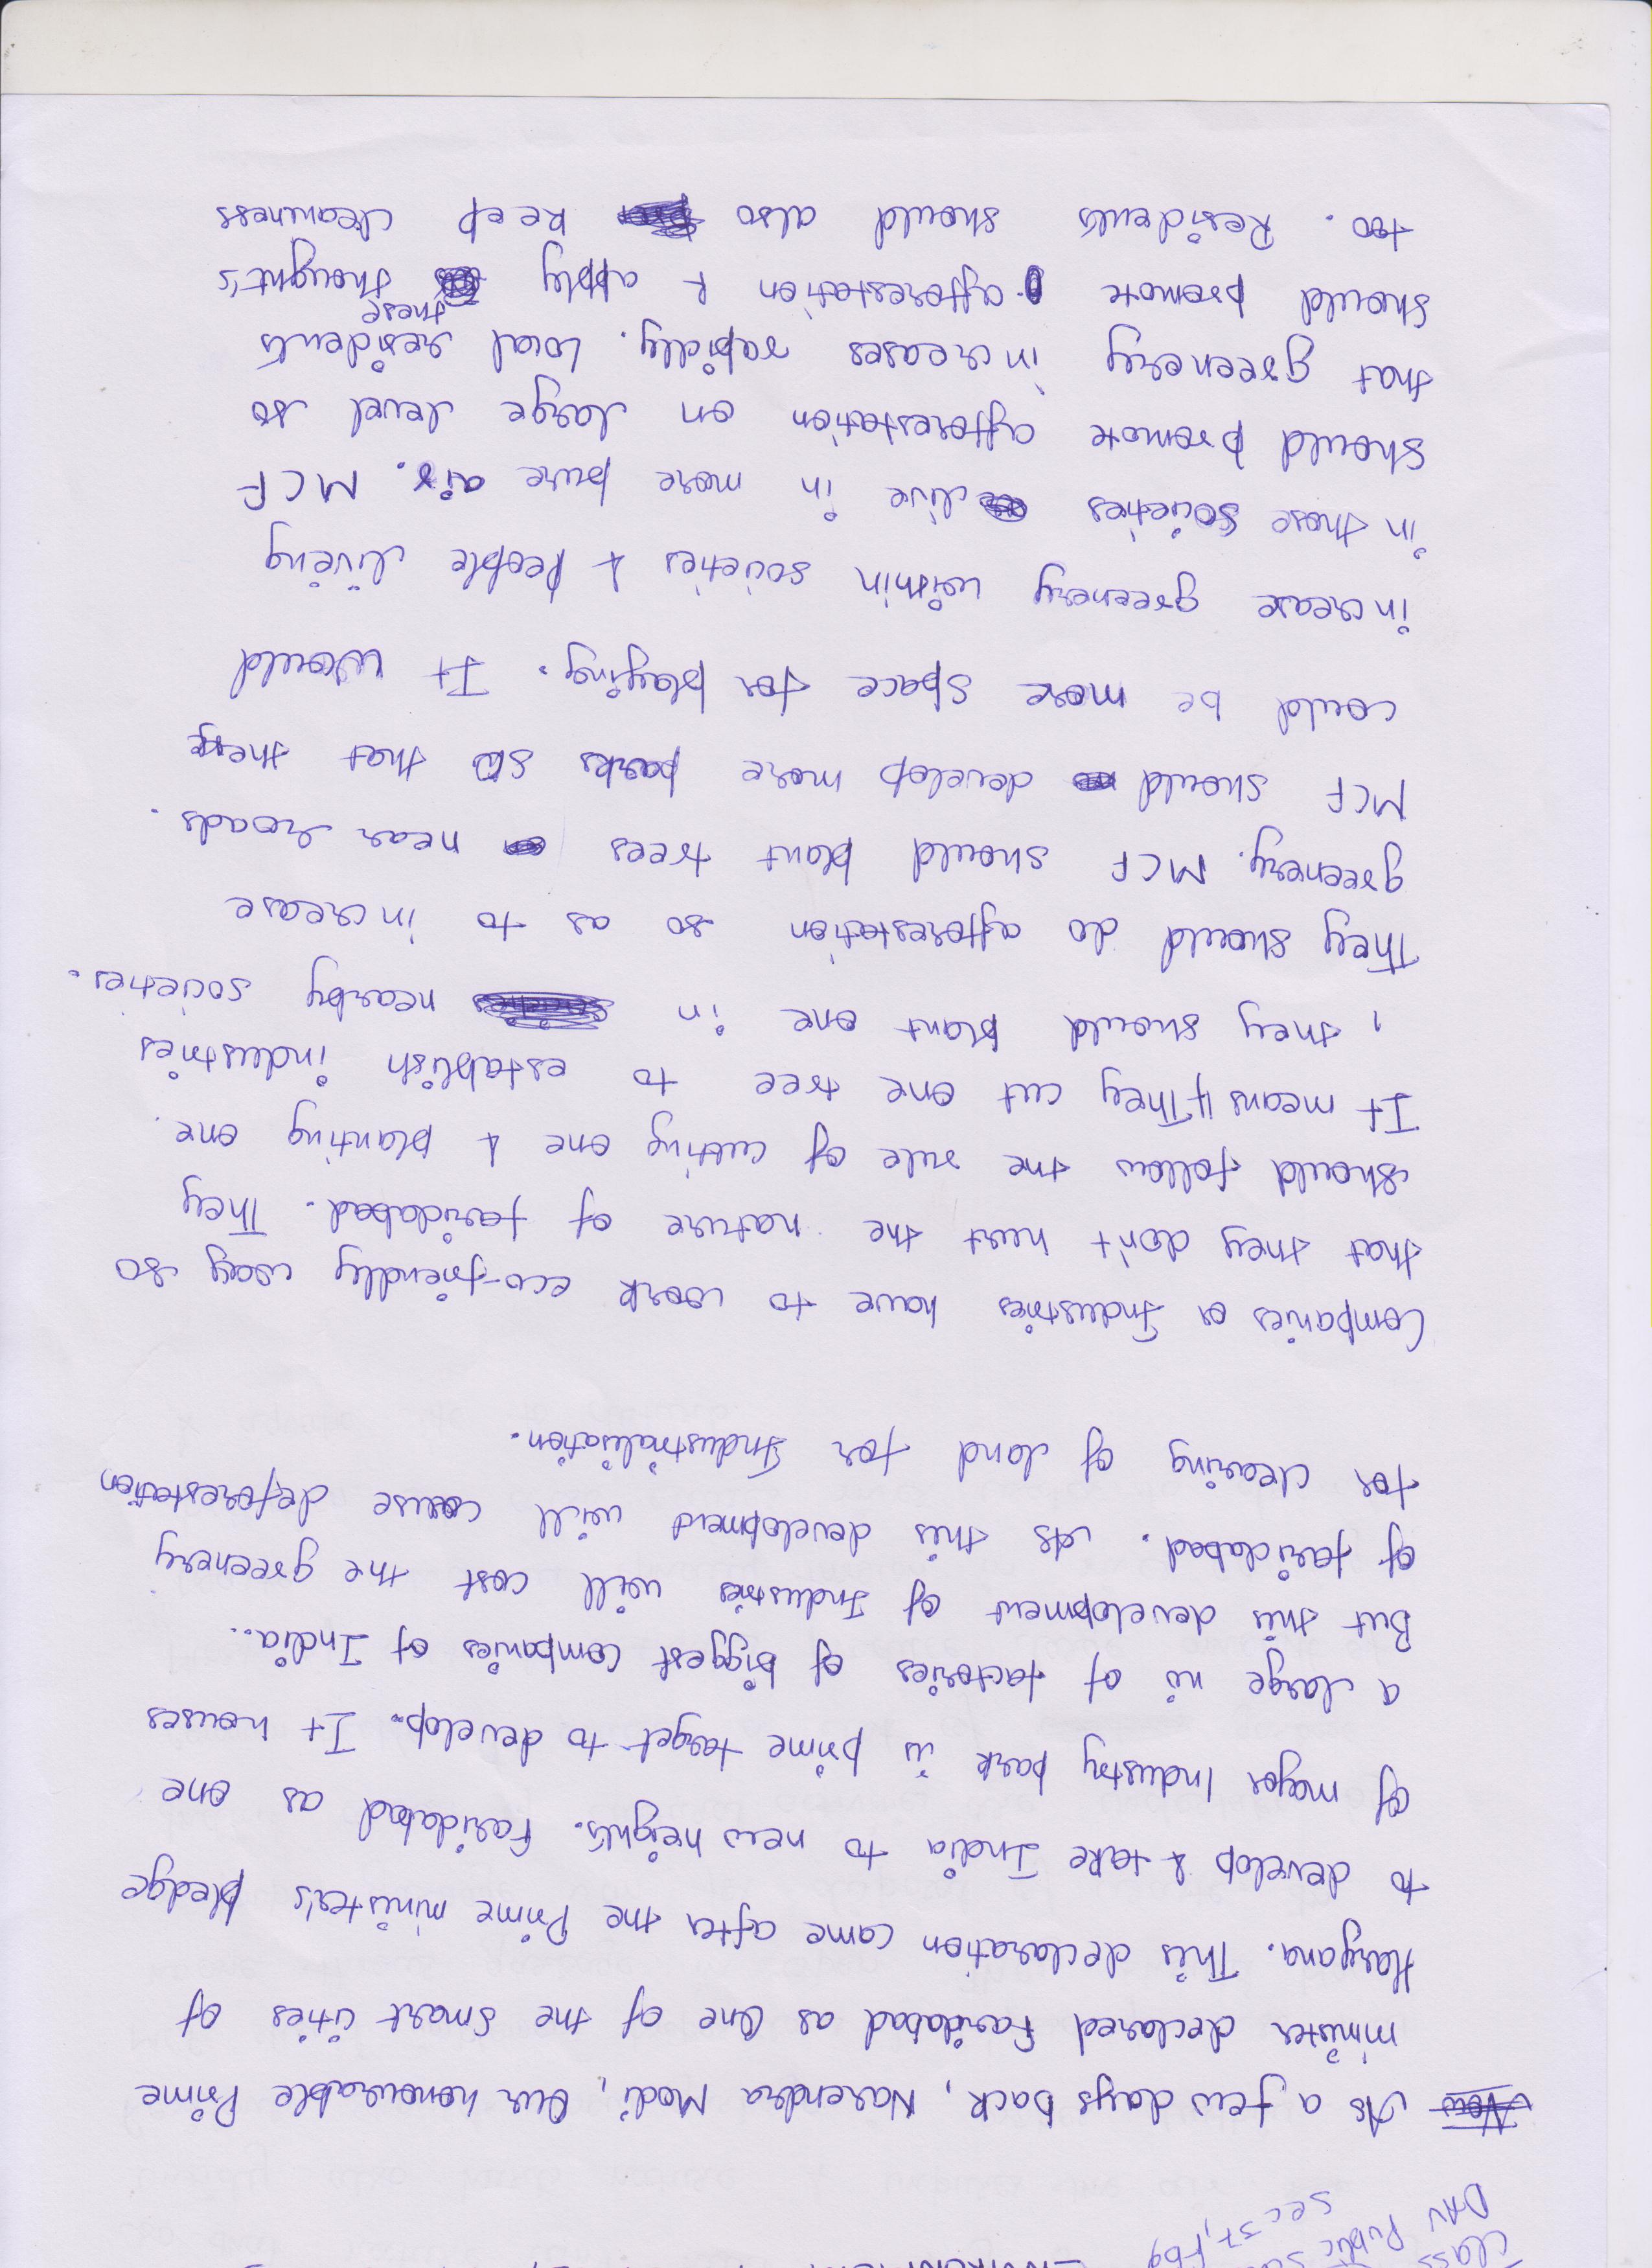 Class
DAV Public
Sec 37, Fbd
As a few days back, Narendra Modi, Our honourable Prime
minister declared Faridabad as One of the Smart Cities of
Haryana. This declaration came after the Prime minister's pledge
to develop & take India to new heights. Faridabad as one
of major Industry park is prime target to develop. It houses
a large no of factories of biggest companies of India.
But this development of Industries will cost the greenery
of faridabad. As this development will cause deforestation
for clearing of land for Industrialisation.
Companies or Industries have to work eco-friendly way so
that they don't hurt the nature of faridabad. They
should follow the rule of cutting one & planting one.
It means if They cut one tree to establish industries
, they should plant one in nearby societies.
They should do afforestation so as to increase
greenery. MCF should plant trees near roads.
MCF should develop more parks so that there
could be more space for playing. It would
increase greenery within societies & people living
in those societies live in more pure air. MCF
should promote afforestation on large level so
that greenery increases rapidly. Local residents
should promote afforestation & apply these thought's
too. Residents should also keep cleanness